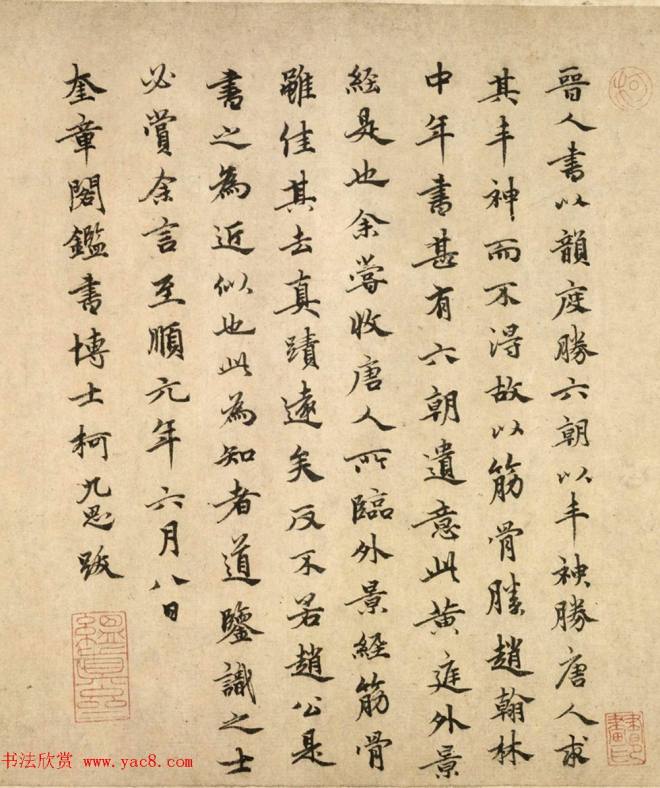 晉人書以韻度勝六朝以丰神勝唐人求
其丰神而不淂故以筋骨勝趙翰林
中年書甚有六朝遺意此黄庭外景
經是也余嘗收唐人所臨外景經筋骨
雖佳其去真蹟遠矣反不若趙公是
書之為近似也此為知者道鑒識之士
必賞余言至順元年六月八日
奎章閣鑑書博士柯九思跋
柯
書法欣賞 www.yac8.com